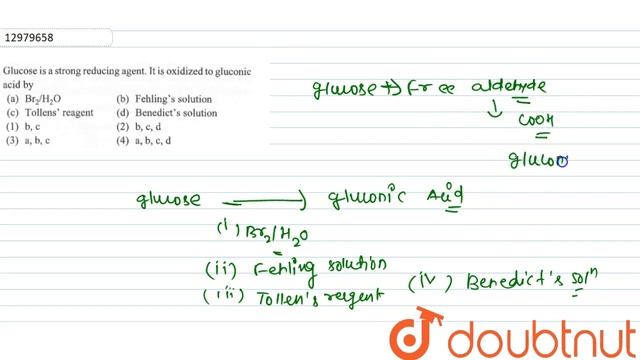 12979658
Glucose is a strong reducing agent. It is oxidized to gluconic
acid by
(a) Br₂/H₂O (b) Fehling's solution
(c) Tollens' reagent (d) Benedict's solution
(1) b, c (2) b, c, d
(3) a, b, c (4) a, b, c, d
glucose → Free aldehyde
↓
COOH
glucon
glucose ⟶ gluconic Acid
(i) Br₂/H₂O
(ii) Fehling solution
(iii) Tollen's reigent
(iv) Benedict's solⁿ
doubtnut